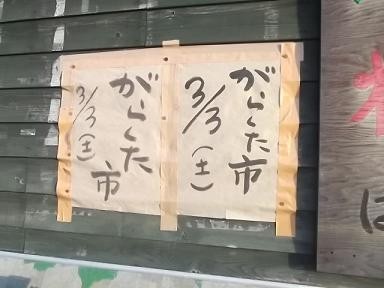 がらくた市
3/3(土)
がらくた市
3/3(土)
は